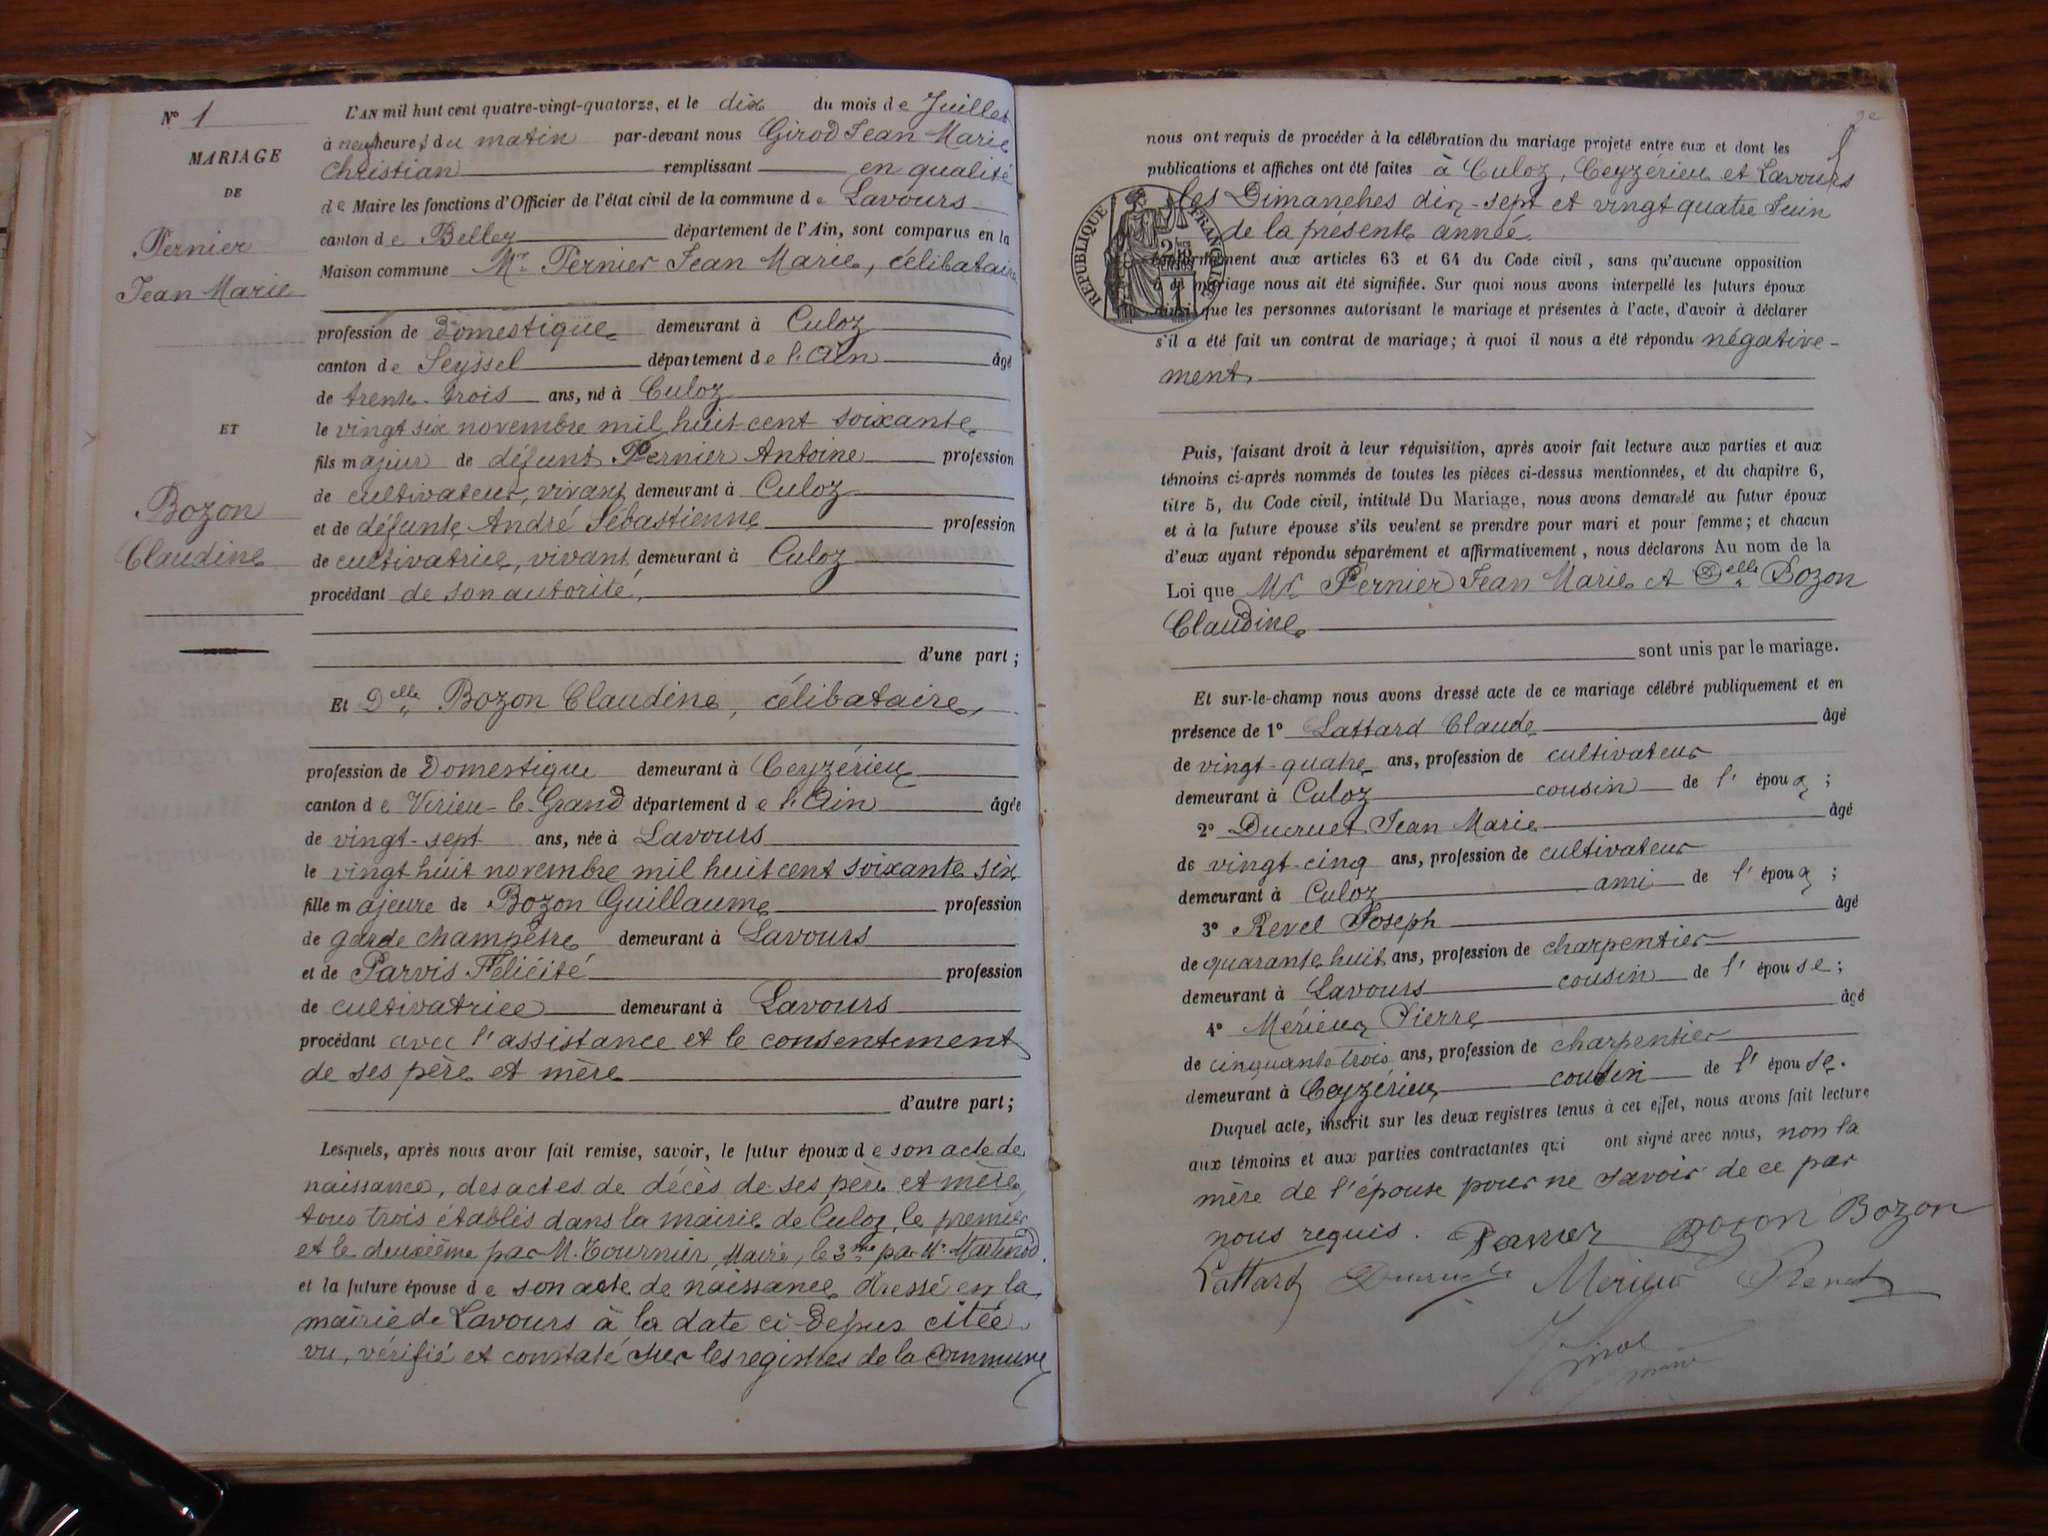 N° 1
MARIAGE
DE
Pernier
Jean Marie
ET
Bozon
Claudine
L'AN mil huit cent quatre-vingt-quatorze, et le dix du mois de Juillet
à neuf heures du matin par-devant nous Girod Jean Marie
Christian remplissant en qualité
de Maire les fonctions d'Officier de l'état civil de la commune de Lavours
canton de Belley département de l'Ain, sont comparus en la
Maison commune Mr. Pernier Jean Marie, célibataire
profession de Domestique demeurant à Culoz
canton de Seyssel département de l'Ain âgé
de trente-trois ans, né à Culoz
le vingt six novembre mil huit cent soixante
fils majeur de défunt Pernier Antoine profession
de cultivateur, vivant demeurant à Culoz
et de défunte André Sébastienne profession
de cultivatrice, vivant demeurant à Culoz
procédant de son autorité,
d'une part ;
Et Delle Bozon Claudine, célibataire,
profession de Domestique demeurant à Ceyzérieu
canton de Virieu-le-Grand département de l'Ain âgée
de vingt-sept ans, née à Lavours
le vingt huit novembre mil huit cent soixante six
fille majeure de Bozon Guillaume profession
de garde champêtre demeurant à Lavours
et de Parvis Félicité profession
de cultivatrice demeurant à Lavours
procédant avec l'assistance et le consentement
de ses père et mère
d'autre part ;
Lesquels, après nous avoir fait remise, savoir, le futur époux de son acte de
naissance, des actes de décès de ses père et mère,
tous trois établis dans la mairie de Culoz, le premier
et le deuxième par M. Tournier, Maire, le 3me par Mr Martinod.
et la future épouse de son acte de naissance dressé en la
mairie de Lavours à la date ci-depus citée
vu, vérifié et constaté sur les registres de la commune
2e
nous ont requis de procéder à la célébration du mariage projeté entre eux et dont les
publications et affiches ont été faites à Culoz, Ceyzérieu et Lavours
les Dimanches dix-sept et vingt quatre Juin
de la présente année.
RÉPUBLIQUE FRANÇAISE
conformément aux articles 63 et 64 du Code civil, sans qu'aucune opposition
à ce mariage nous ait été signifiée. Sur quoi nous avons interpellé les futurs époux
ainsi que les personnes autorisant le mariage et présentes à l'acte, d'avoir à déclarer
s'il a été fait un contrat de mariage; à quoi il nous a été répondu négative-
ment.
Puis, faisant droit à leur réquisition, après avoir fait lecture aux parties et aux
témoins ci-après nommés de toutes les pièces ci-dessus mentionnées, et du chapitre 6,
titre 5, du Code civil, intitulé Du Mariage, nous avons demandé au futur époux
et à la future épouse s'ils veulent se prendre pour mari et pour femme; et chacun
d'eux ayant répondu séparément et affirmativement, nous déclarons Au nom de la
Loi que Mr. Pernier Jean Marie et Delle Bozon
Claudine
sont unis par le mariage.
Et sur-le-champ nous avons dressé acte de ce mariage célébré publiquement et en
présence de 1° Lattard Claude âgé
de vingt-quatre ans, profession de cultivateur
demeurant à Culoz cousin de l'époux ;
2° Ducruet Jean Marie âgé
de vingt-cinq ans, profession de cultivateur
demeurant à Culoz ami de l'époux ;
3° Revel Joseph âgé
de quarante huit ans, profession de charpentier
demeurant à Lavours cousin de l'épouse ;
4° Mérieux Pierre âgé
de cinquante trois ans, profession de charpentier
demeurant à Ceyzérieu cousin de l'épouse.
Duquel acte, inscrit sur les deux registres tenus à cet effet, nous avons fait lecture
aux témoins et aux parties contractantes qui ont signé avec nous, non la
mère de l'épouse pour ne savoir de ce par
nous requis. Pernier Bozon Bozon
Lattard Ducruet Merieux Revel
Girod
maire